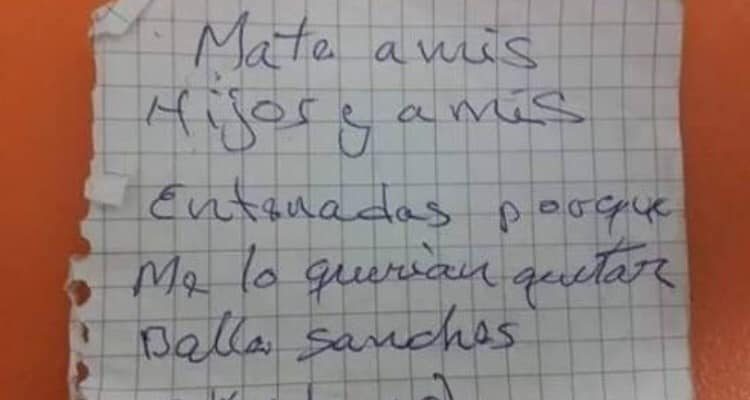 Mate a mis
Hijos y a mis
Entenadas porque
Me lo querian quitar
Balla sanchos